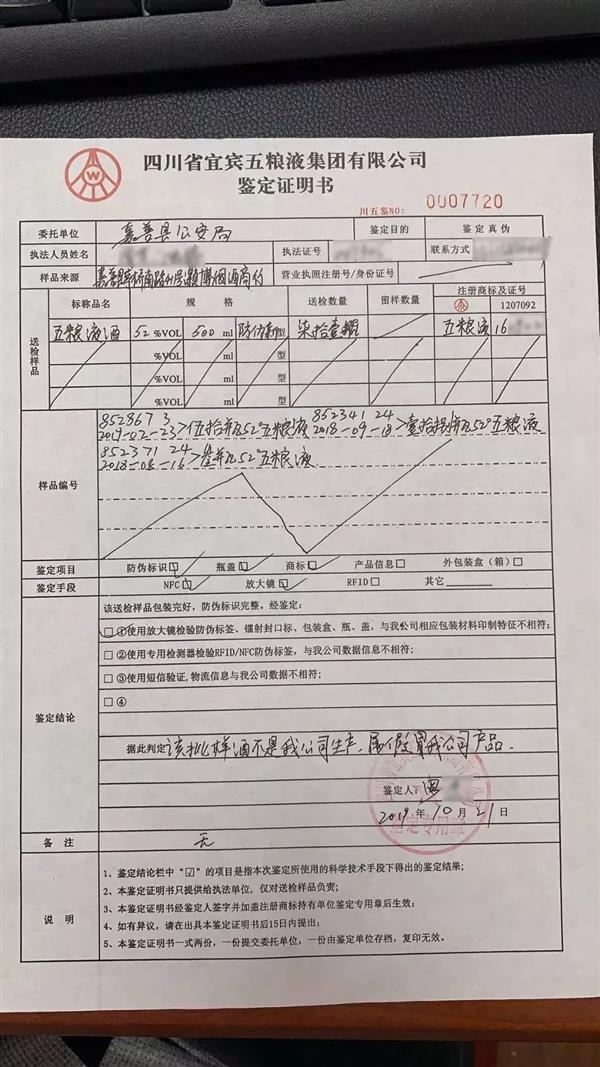 四川省宜宾五粮液集团有限公司
鉴定证明书
川五鉴NO: 0007720
委托单位 嘉善县公安局 鉴定目的 鉴定真伪
执法人员姓名 执法证号 联系方式
样品来源 嘉善 桥南路 号 烟酒商行 营业执照注册号/身份证号
送检样品
标称品名 规格 送检数量 留样数量 注册商标及证号
1207092
五粮液酒 52%VOL 500ml 防伪 型 柒拾壹 五粮液 16
%VOL ml 型
%VOL ml 型
%VOL ml 型
样品编号
852867 3 852341 24
2019-02-23>伍拾 瓶52°五粮液 2018-09-18>壹拾 瓶52°五粮液
852371 24
2018-08-16> 瓶52°五粮液
鉴定项目 防伪标识☑ 瓶盖☑ 商标☑ 产品信息□ 外包装盒(箱)□
鉴定手段 NFC☑ 放大镜☑ RFID□ 其它
鉴定结论
该送检样品包装完好,防伪标识完整。经鉴定:
☑①使用放大镜检验防伪标签、镭射封口标、包装盒、瓶、盖,与我公司相应包装材料印制特征不相符;
□②使用专用检测器检验RFID/NFC防伪标签,与我公司数据信息不相符;
□③使用短信验证,物流信息与我公司数据不相符;
□④
据此判定 该批样酒不是我公司生产,属假冒我公司产品。
鉴定人:
2019年10月21日
鉴定专用章
备注 无
说明
1、鉴定结论栏中"☑"的项目是指本次鉴定所使用的科学技术手段下得出的鉴定结果;
2、本鉴定证明书只提供给执法单位,仅对送检样品负责;
3、本鉴定证明书经鉴定人签字并加盖注册商标持有单位鉴定专用章后生效;
4、如有异议,请在出具本鉴定证明书后15日内提出;
5、本鉴定证明书一式两份,一份提交委托单位,一份由鉴定单位存档,复印无效。